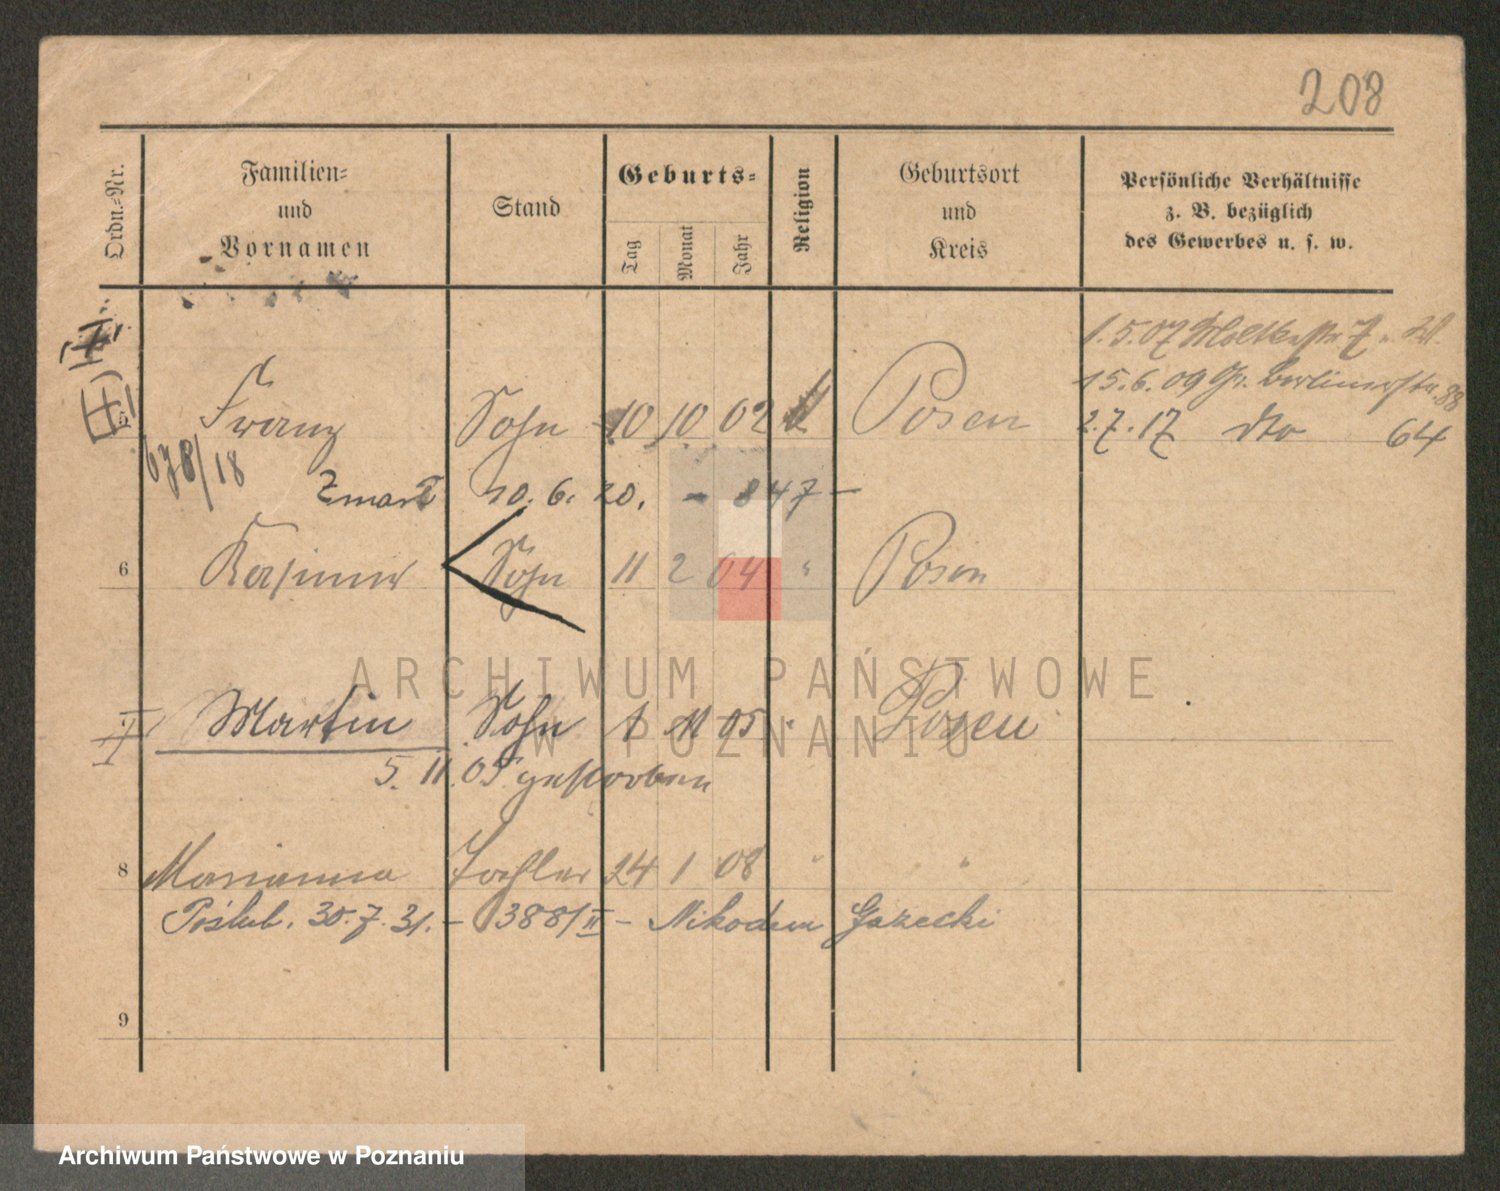 208
Ordn.-Nr.
Familien-
und
Vornamen
Stand
Geburts-
Tag
Monat
Jahr
Religion
Geburtsort
und
Kreis
Persönliche Verhältnisse
z. B. bezüglich
des Gewerbes u. s. w.
1.5.07 Moltkestr. 7
15.6.09 Gr. Berlinerstr. 88
5 Franz Sohn 10 10 02 Posen
2.7.17 dto 64
678/18
Zmarł 10. 6. 20. - 847 -
6 Kasimir Sohn 11 2 04 " Posen
ARCHIWUM PAŃSTWOWE
W POZNANIU
Martin Sohn 1 11 05 " Posen
5. 11. 05 gestorben
8 Marianna Tochter 24 1 08 " "
Poślub. 30. 7. 31. - 388/II - Nikodem Gazecki
9
Archiwum Państwowe w Poznaniu